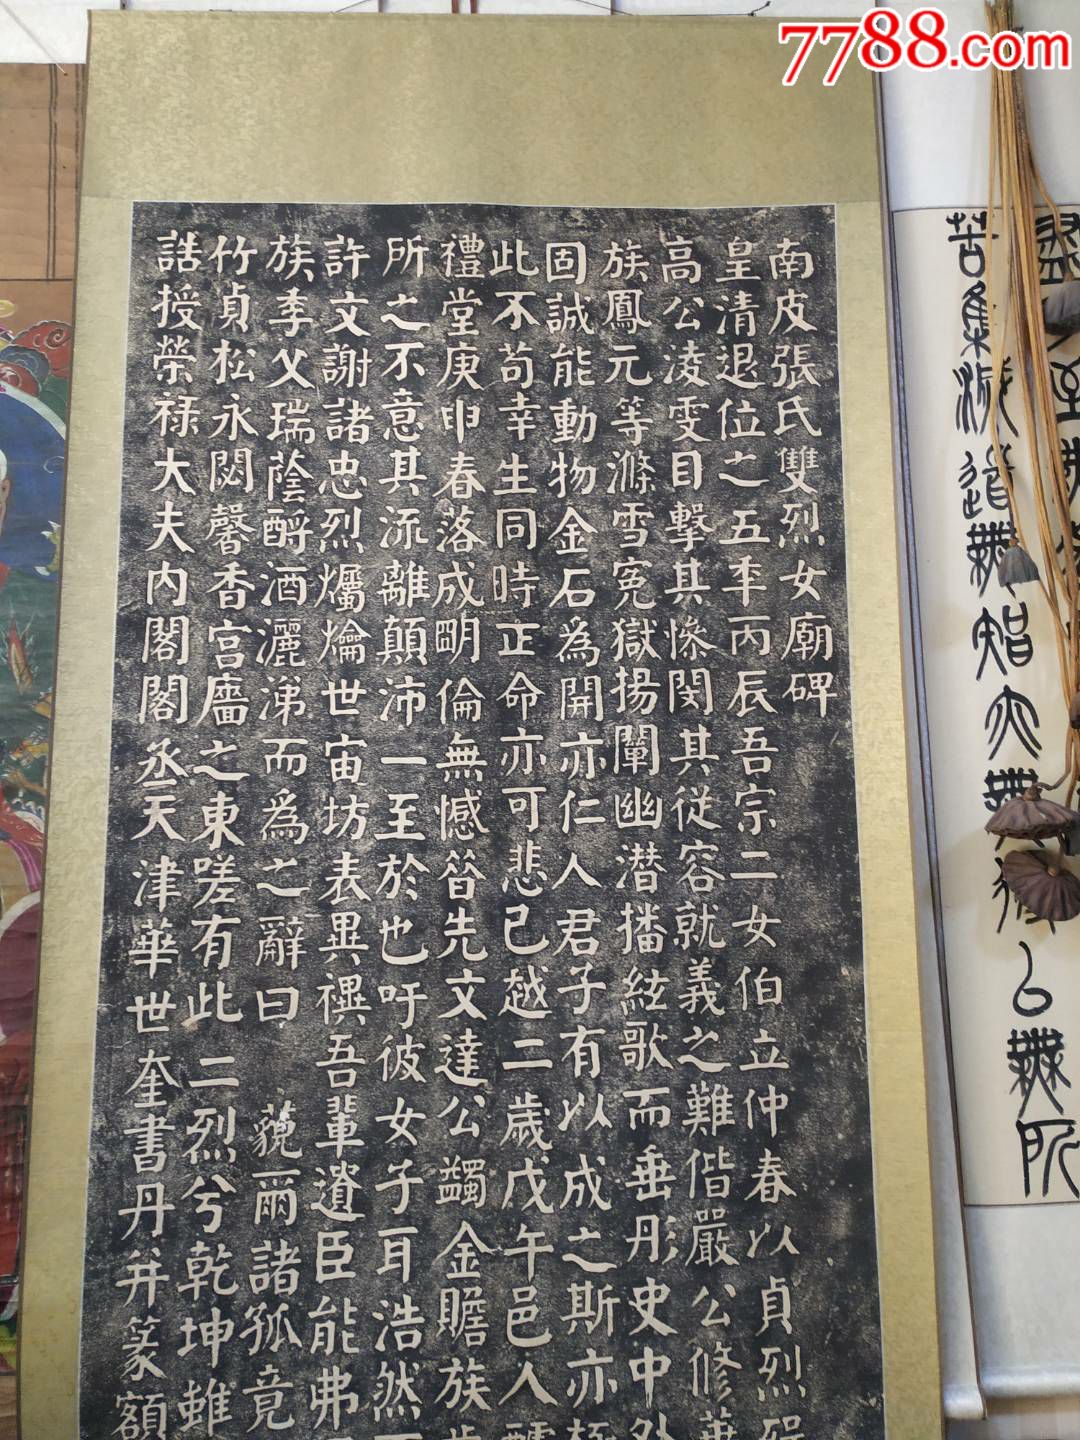 7788.com
南皮張氏雙烈女廟碑
皇清退位之五年丙辰吾宗二女伯立仲春以貞烈
高公淩雯目擊其慘閔其從容就義之難偕嚴公修華
族鳳元等滌雪冤獄揚闡幽潛播絃歌而垂丹史中外
固誠能動物金石為開亦仁人君子有以成之斯亦極
此不苟幸生同時正命亦可悲已越二歲戊午邑人醵
禮堂庚申春落成明倫無憾昝先文達公蠲金贍族
所之不意其流離顛沛一至於也吁彼女子耳浩然
許文謝諸忠烈爥爚世宙坊表異禩吾輩遺臣能弗
族季父瑞蔭酹酒灑涕而為之辭曰 藐爾諸孤竟
竹貞松永閟馨香宮廧之東嗟有此二烈兮乾坤雖
誥授榮祿大夫內閣閣丞天津華世奎書丹并篆額
苦集滅道無智亦無
以無所